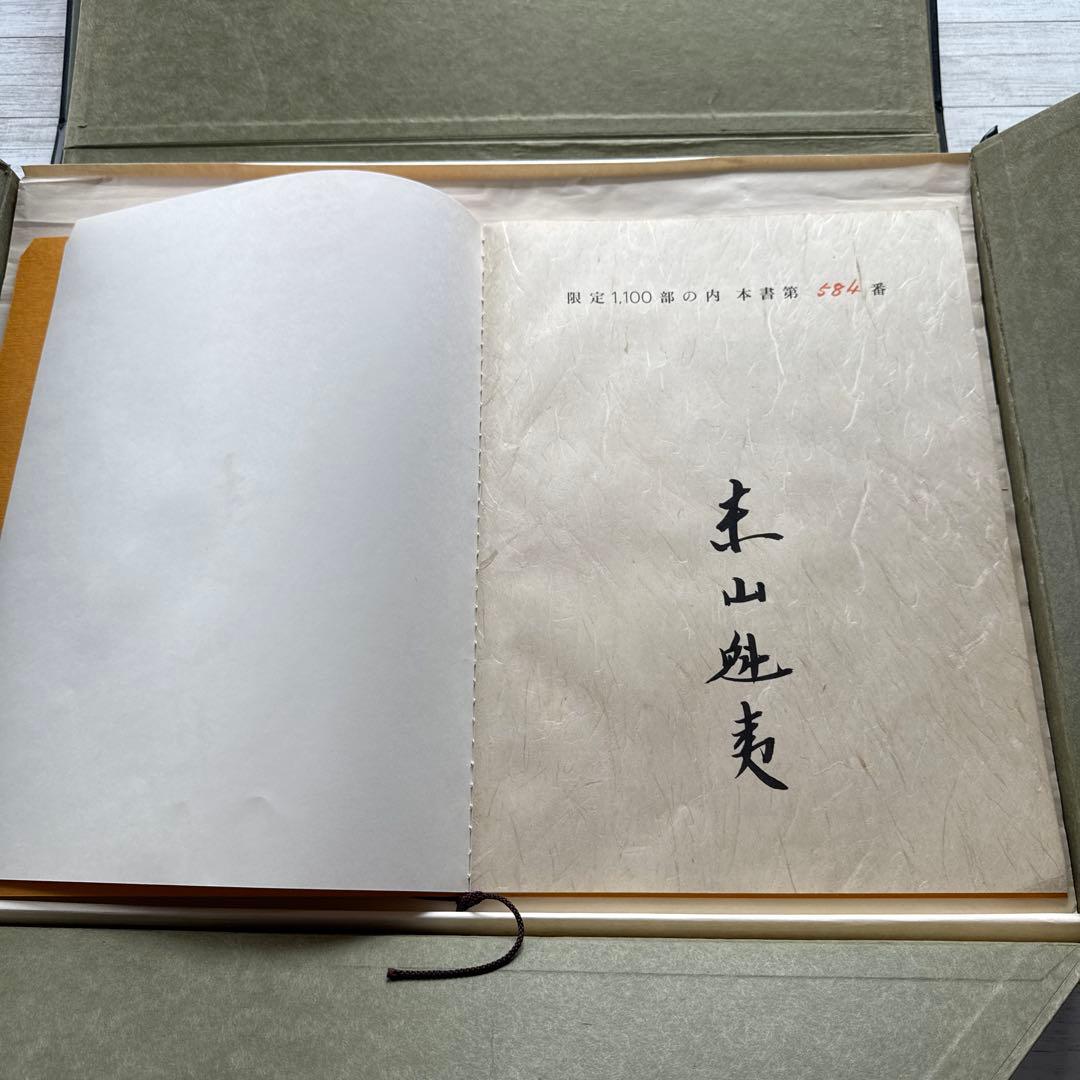 限定1,100部の内 本書第 584 番
東山魁夷